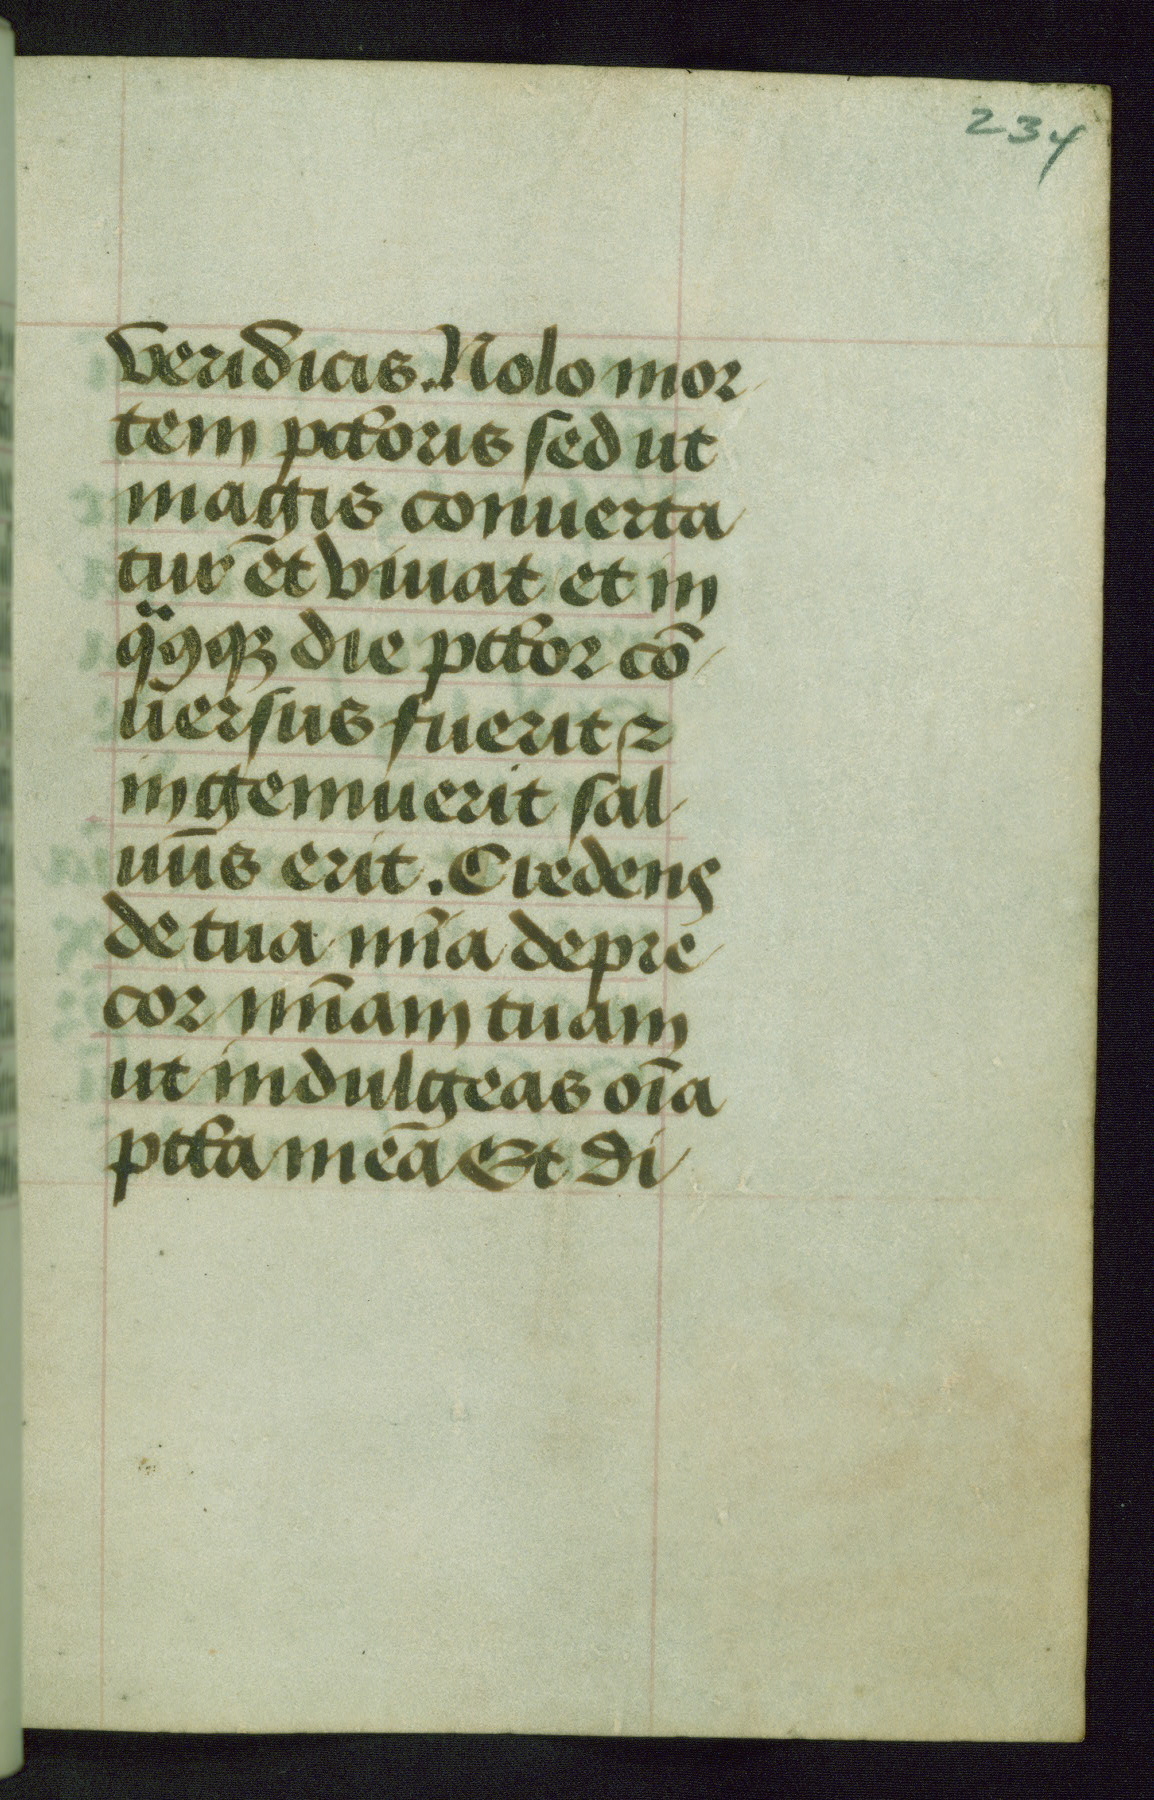 234
veridicis. Nolo mor
tem pctoris sed ut
magis conuerta
tur et viuat et in
q̈cūqꝫ die pctor cō
uersus fuerit ⁊
ingemuerit sal
uus erit. Credens
de tua mīa depre
cor mīam tuam
ut indulgeas oīa
pctā mea Et di